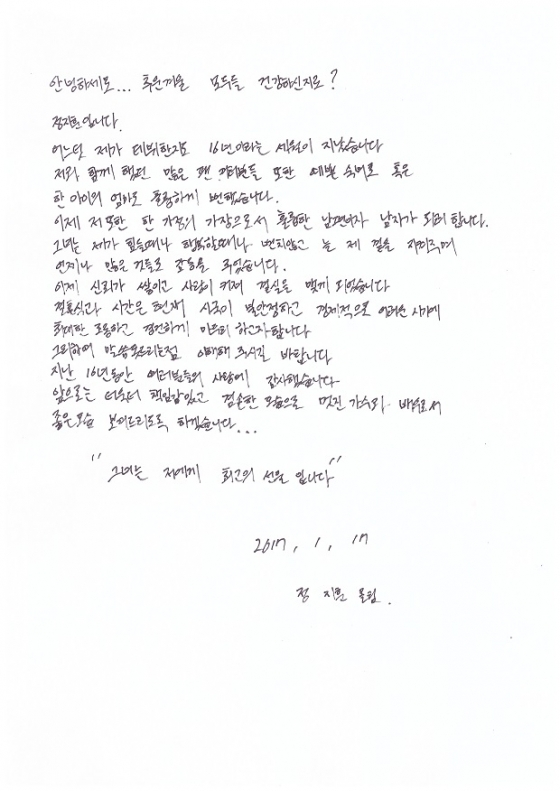 안녕하세요... 추운겨울 모두들 건강하신지요?
정지훈입니다.
어느덧 제가 데뷔한지도 16년이라는 세월이 지났습니다
저와 함께 했던 많은 팬 여러분들 또한 예쁜 숙녀로 혹은
한 아이의 엄마로 훌륭하게 변했습니다.
이제 저 또한 한 가정의 가장으로서 훌륭한 남편이자 남자가 되려 합니다.
그녀는 제가 힘들때나 행복할때나 변치않고 늘 제 곁을 지켜주며
언제나 많은 것들로 감동을 주었습니다.
이제 신뢰가 쌓이고 사랑이 커져 결실을 맺게 되었습니다
결혼식과 시간은 현재 시국이 불안정하고 경제적으로 어려운 시기에
최대한 조용하고 경건하게 마무리 하고자 합니다
그리하여 말씀 못드리는점 이해해 주시길 바랍니다
지난 16년동안 여러분들의 사랑에 감사했습니다
앞으로는 더욱더 책임감있고 겸손한 모습으로 멋진 가수와 배우로서
좋은모습 보여드리도록 하겠습니다...
" 그녀는 저에게 최고의 선물 입니다 "
2017, 1, 17
정 지훈 올림.